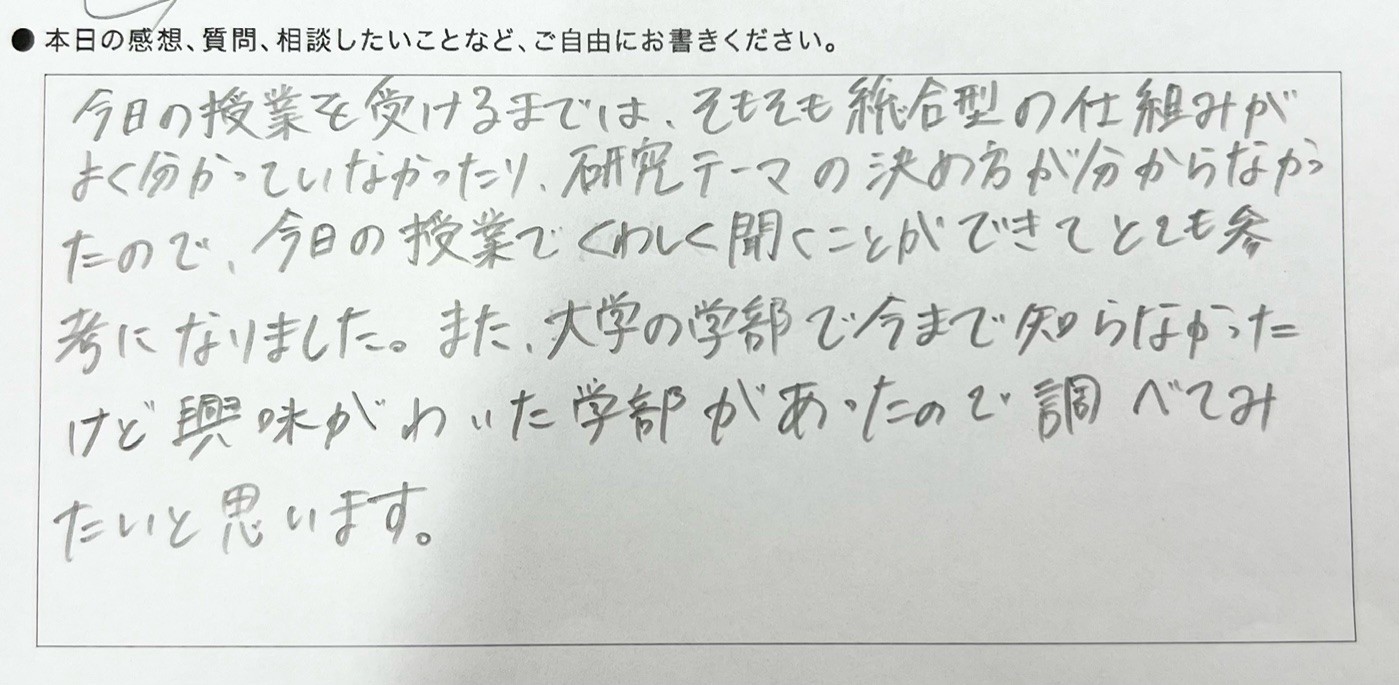 ●本日の感想、質問、相談したいことなど、ご自由にお書きください。
今日の授業を受けるまでは、そもそも総合型の仕組みが
よく分かっていなかったり、研究テーマの決め方が分からなかっ
たので、今日の授業でくわしく聞くことができてとても参
考になりました。また、大学の学部で今まで知らなかった
けど興味がわいた学部があったので調べてみ
たいと思います。